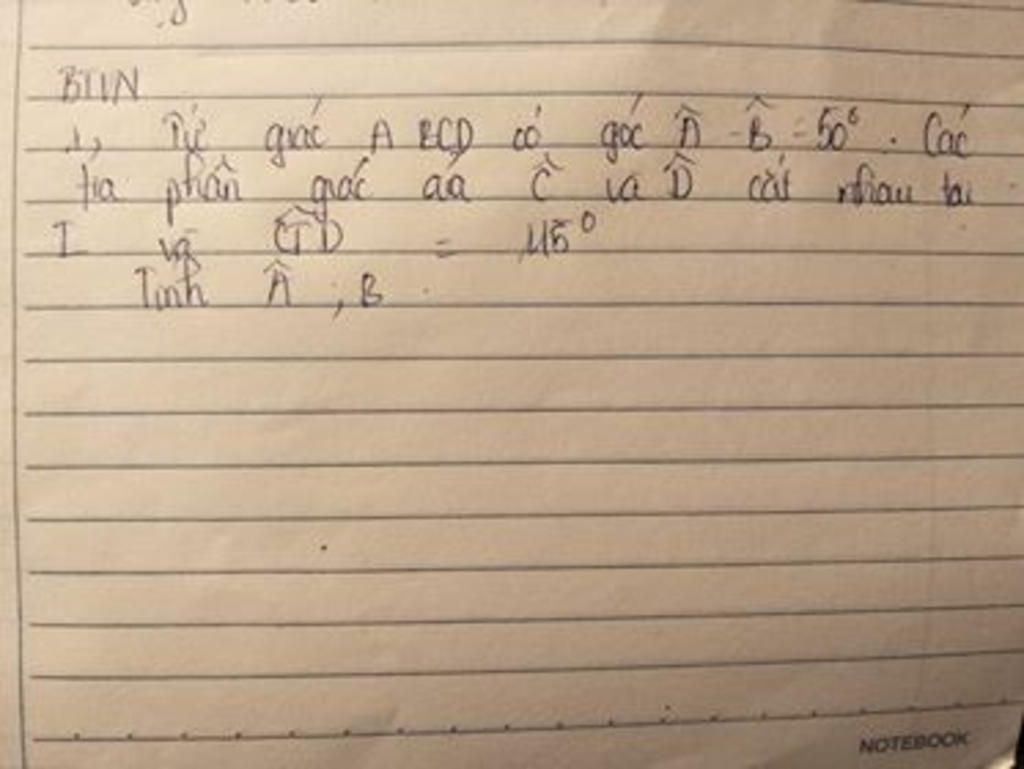 BTVN
1, Tứ giác ABCD có góc Â - B̂ = 50°. Các
tia phân giác của Ĉ và D̂ cắt nhau tại
I và CÎD = 115°
Tính Â, B
NOTEBOOK